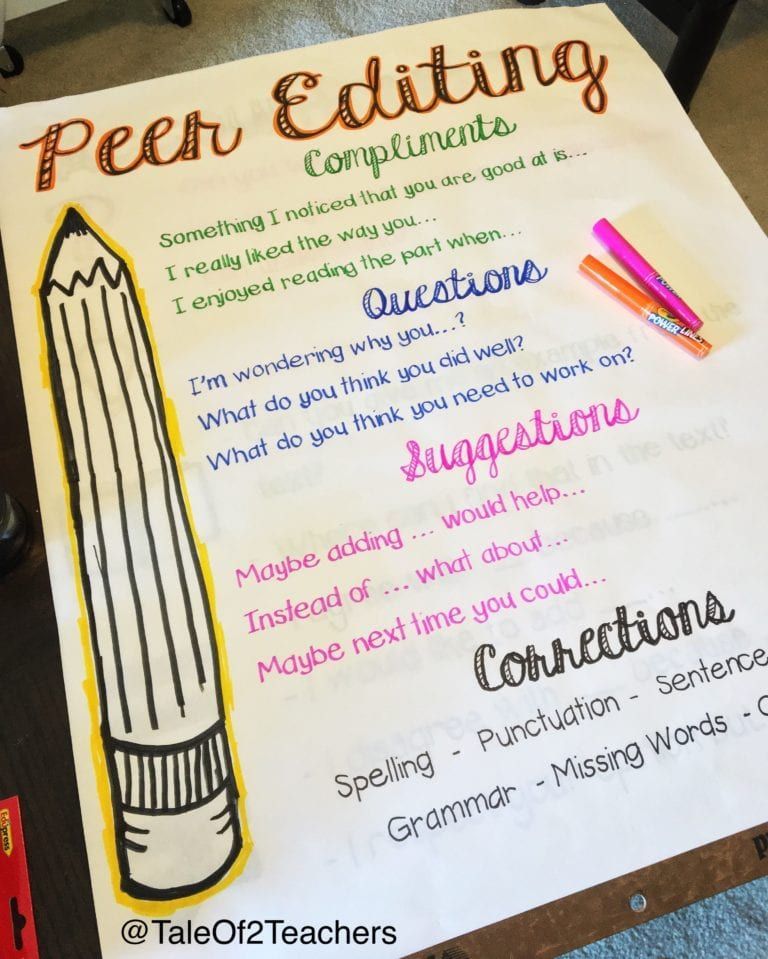 Peer Editing
Compliments
Something I noticed that you are good at is...
I really liked the way you...
I enjoyed reading the part when...
Questions
I'm wondering why you...?
What do you think you did well?
What do you think you need to work on?
Suggestions
Maybe adding ... would help...
Instead of ... what about...
Maybe next time you could...
Corrections
Spelling - Punctuation - Sentence
Grammar - Missing Words -
POWER LINES
Edupress
@TaleOf2Teachers